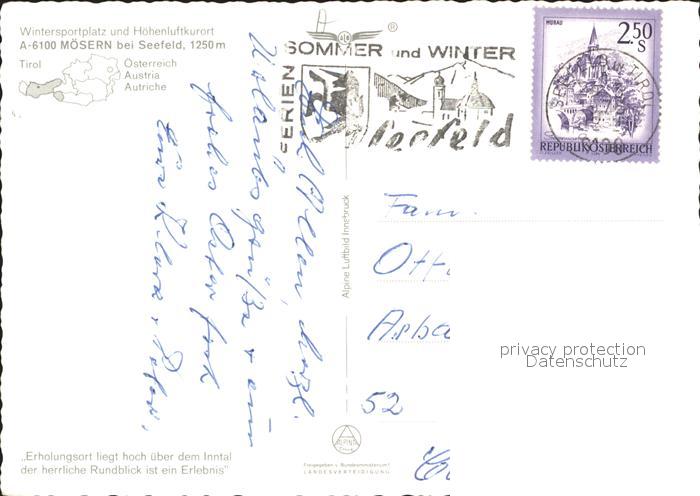 Wintersportplatz und Höhenluftkurort
A-6100 MÖSERN bei Seefeld, 1250 m
Tirol
Österreich
Austria
Autriche
®
FERIEN
SOMMER und WINTER
Seefeld
MURAU
2.50
S
REPUBLIK ÖSTERREICH
Allen, herzl.
Urlaubsgrüße u. ein
frohes Osterfest
Eure
Alpine Luftbild Innsbruck
Fam.
Ott
52
privacy protection
Datenschutz
ALPINE
Freigegeben v. Bundesministerium f.
LANDESVERTEIDIGUNG
„Erholungsort liegt hoch über dem Inntal
der herrliche Rundblick ist ein Erlebnis"